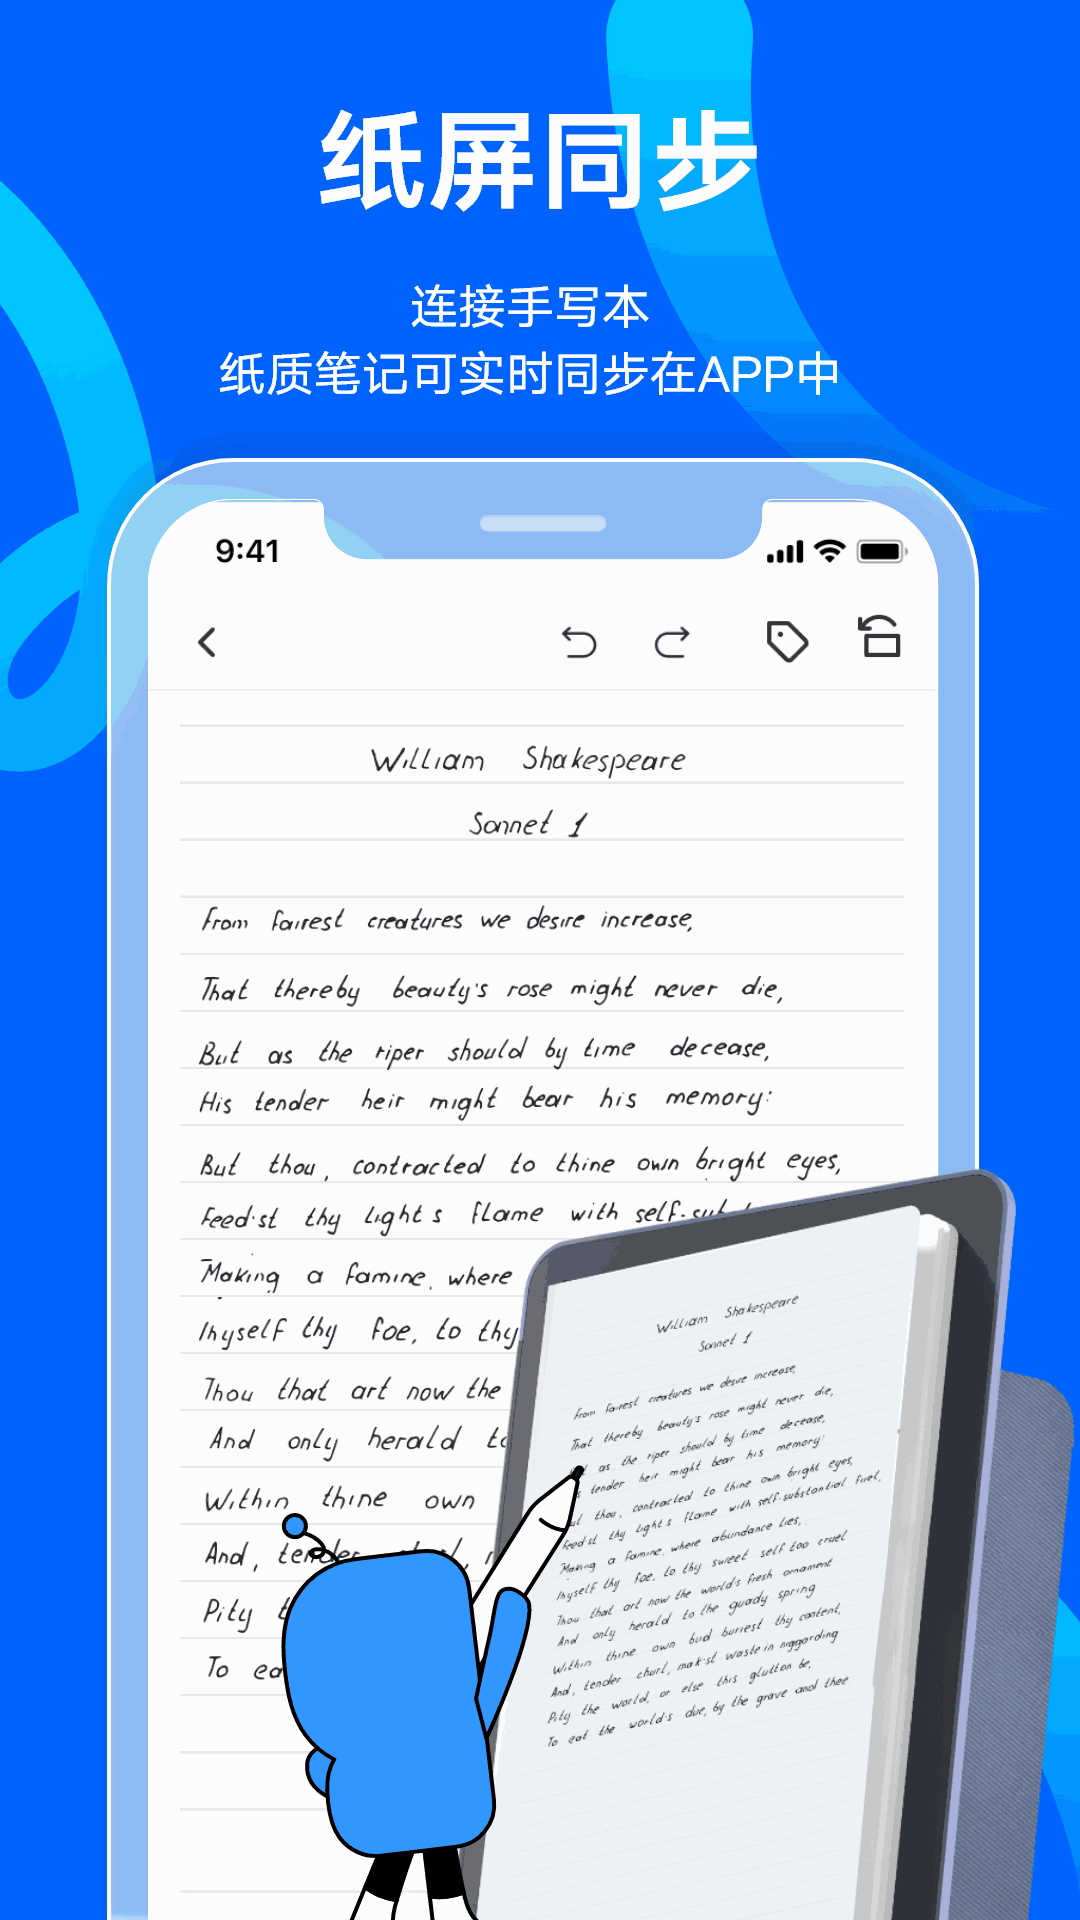 纸屏同步
连接手写本
纸质笔记可实时同步在APP中
9:41
William Shakespeare
Sonnet 1
From fairest creatures we desire increase,
That thereby beauty's rose might never die,
But as the riper should by time decease,
His tender heir might bear his memory:
But thou, contracted to thine own bright eyes,
Feed'st thy light's flame with self-sub
Making a famine, where
Thyself thy foe, to thy
Thou that art now the
And only herald to
Within thine own
And, tender churl,
Pity
To ea
William Shakespeare
Sonnet 1
From fairest creatures we desire increase,
That thereby beauty's rose might never die,
as the riper should by time decease,
tender heir might bear his memory:
thou, contracted to thine own bright eyes,
Feed'st thy light's flame with self-substantial fuel,
Making a famine, where abundance lies,
Thyself thy foe, to thy sweet self too cruel
Thou that art now the world's fresh ornament
And only herald to the guady spring
Within thine own bud buriest thy content,
And, tender churl, mak'st waste in niggarding
Pity the world, or else this glutton be,
To eat the world's due, by the grave and thee